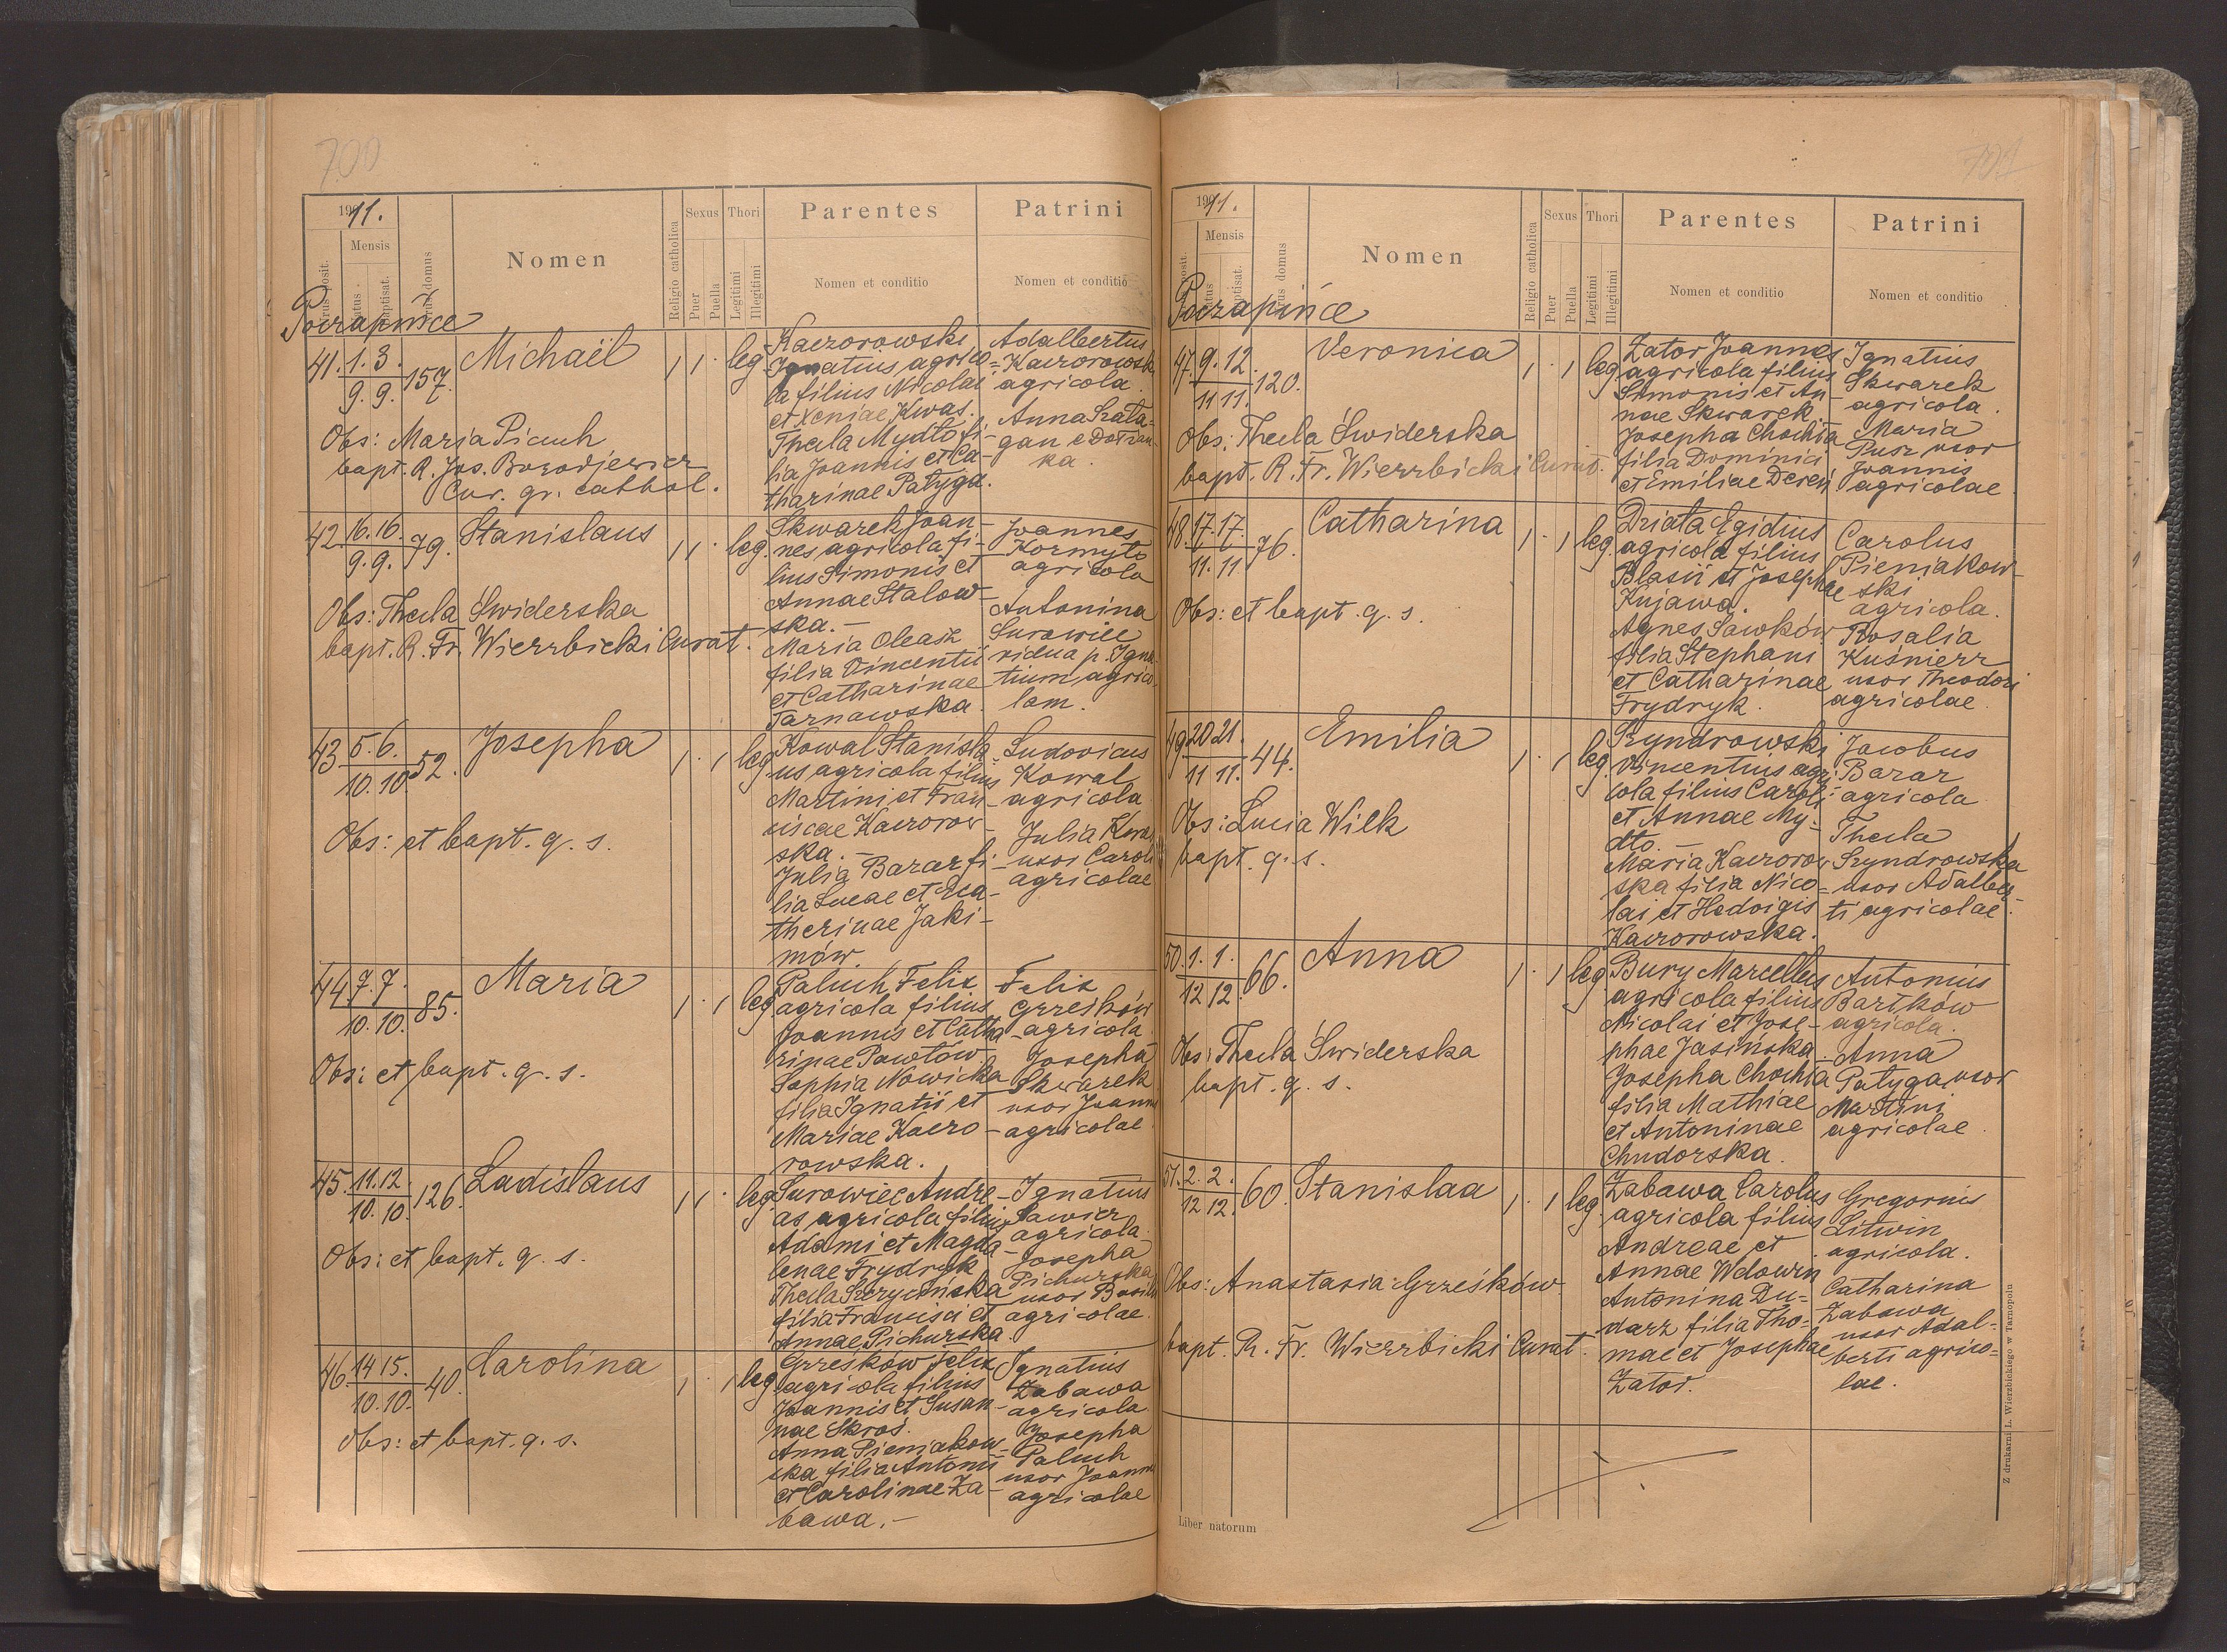 700
1911.
Mensis
Nomen
Religio catholica
Sexus
Puer
Puella
Thori
Legitimi
Illegitimi
Parentes
Nomen et conditio
Patrini
Nomen et conditio
41. 1. 3. 9. 9. 157. Michaël 1 1 leg
Kaczorowski
Ignatius agrico=
la filius Nicolai
et Xeniae Kwas.
Thecla Mydło fi-
lia Joannis et Ca-
tharinae Patyga.
Adalbertus
Kaczorowski
agricola
Anna
ka.
Obs: Maria Piczuch
bapt. R. Jos.
Cur. gr. cathol.
42. 16. 16. 9. 9. 79. Stanislaus 1 1 leg.
Skwarek Joan-
nes agricola fi-
lius Simonis et
Annae Stalow-
ska.-
Maria Oleasik
filia Vincentii
et Catharinae
Tarnawska.
Joannes
Kormyło
agricola
Antonina
Surowiec
vidua p. Igna-
tium agrico-
lam.
Obs: Thecla Świderska
bapt. R. Fr. Wierzbicki Curat.
43 5. 6. 10. 10 52. Josepha 1 1 leg
Kowal Stanisla-
us agricola filius
Martini et Fran-
ciscae Kaczorow-
ska.-
Julia Barar fi-
lia Lucae et Ca-
therinae Jaki-
mów.
Ludovicus
Kowal
agricola
Julia
uxor Caroli
agricolae
Obs: et bapt. q. s.
44 7. 7. 10. 10. 85. Maria 1 1 leg
Paluch Felix
agricola filius
Joannis et Catha-
rinae Pawłów-
Sophia Nowicka
filia Ignatii et
Mariae Kaczo-
rowska.
Felix
Grześków
agricola
Josepha
Skwarek
uxor Joannis
agricolae
Obs: et bapt. q. s.
45. 11. 12. 10. 10. 126. Ladislaus 1 1 leg
Surowiec Andre-
as agricola filius
Adami et Magda-
lenae Frydryk
Thecla
filia Francisci et
Annae Pichurska.
Ignatius
agricola
Josepha
Pichurska
uxor Basilii
agricolae
Obs: et bapt. q. s.
46. 14 15. 10. 10. 40. Carolina 1 1 leg
Grześków Felix
agricola filius
Joannis et Susan-
nae Skroś.
Anna Pieniakow-
ska filia Antonii
et Carolinae Za-
bawa.-
Ignatius
Zabawa
agricola
Josepha
Paluch
uxor Joannis
agricolae
Obs: et bapt. q. s.
701
1911.
Mensis
Nomen
Religio catholica
Sexus
Puer
Puella
Thori
Legitimi
Illegitimi
Parentes
Nomen et conditio
Patrini
Nomen et conditio
Poczapińce
47. 9. 12. 11 11. 120. Veronica 1 1 leg
Zator Joannes
agricola filius
Simonis et An-
nae Skwarek.
Josepha Chochla
filia Dominici
et Emiliae Dereń
Ignatius
Skwarek
agricola.
Maria
Pusz uxor
Joannis
agricolae
Obs: Thecla Świderska
bapt. R. Fr. Wierzbicki Curat.
48. 17. 17. 11. 11 76. Catharina 1 1 leg.
Działa Egidius
agricola filius
Blasii et Josephae
Kujawa.
Agnes Sawków
filia Stephani
et Catharinae
Frydryk.
Carolus
Pieniakow-
ski
agricola.
Rosalia
Kuśnierz
uxor Theodori
agricolae
Obs: et bapt. q. s.
49 20 21. 11 11. 44. Emilia 1 1 leg.
Szyndrowski
Vincentius agri-
cola filius Caroli
et Annae My-
dło.-
Maria Kaczorow-
ska filia Nico=
lai et Hedvigis
Kaczorowska.
Jacobus
Barar
agricola
Thecla
Szyndrowska
uxor Adalber-
ti agricolae.
Obs: Lucia Wilk
bapt. q. s.
50. 1. 1. 12 12. 66. Anna 1 1 leg
Bury Marcellus
agricola filius
Nicolai et Jose-
phae Jasińska
Josepha Chochla
filia Mathiae
et Antoninae
Chudorska.
Antonius
Bartków
agricola.
Anna
Patyga uxor
Martini
agricolae
Obs: Thecla Świderska
bapt. q. s.
51. 2. 2. 12 12. 60. Stanislaa 1 1 leg.
Zabawa Carolus
agricola filius
Andreae et
Annae Wdowin
Antonina Du=
darz filia Tho=
mae et Josephae
Zator.
Gregorius
Litwin
agricola.
Catharina
Zabawa
uxor Adal=
berti agrico=
lae.
Obs: Anastasia Grześków
bapt. R. Fr. Wierzbicki Curat.
Liber natorum
Z drukarni L. Wierzbickiego w Tarnopolu